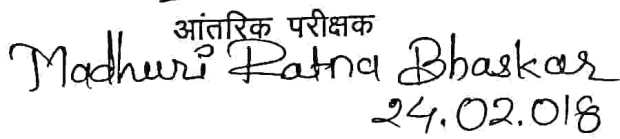 आंतरिक परीक्षक
Madhuri Ratna Bhaskar
24.02.018